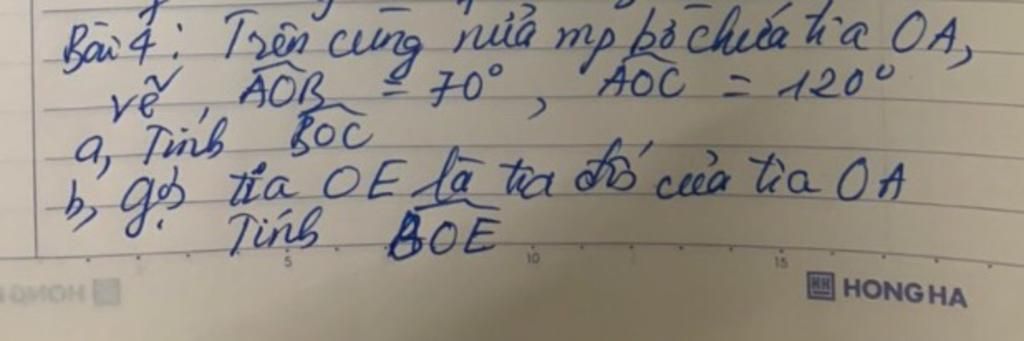 Bài 4: Trên cùng nửa mp bờ chứa tia OA,
vẽ, AOB = 70°, AOC = 120°
a, Tính BOC
b, gọi tia OE là tia đối của tia OA
Tính BOE
5 10 15
HONG HA